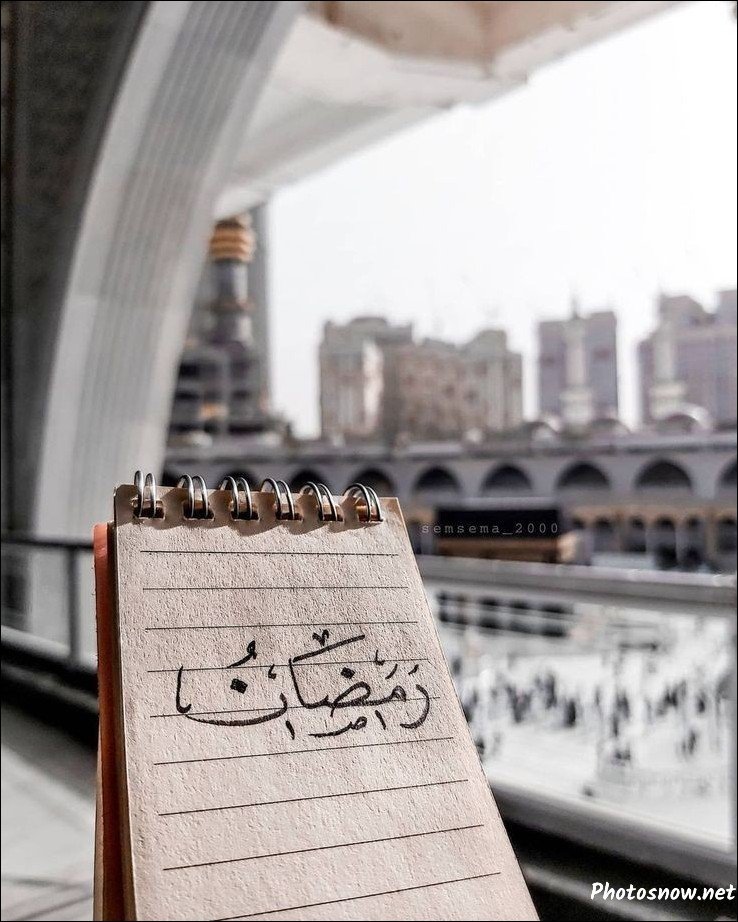 semsema_2000
رَمَضَانُ
Photosnow.net